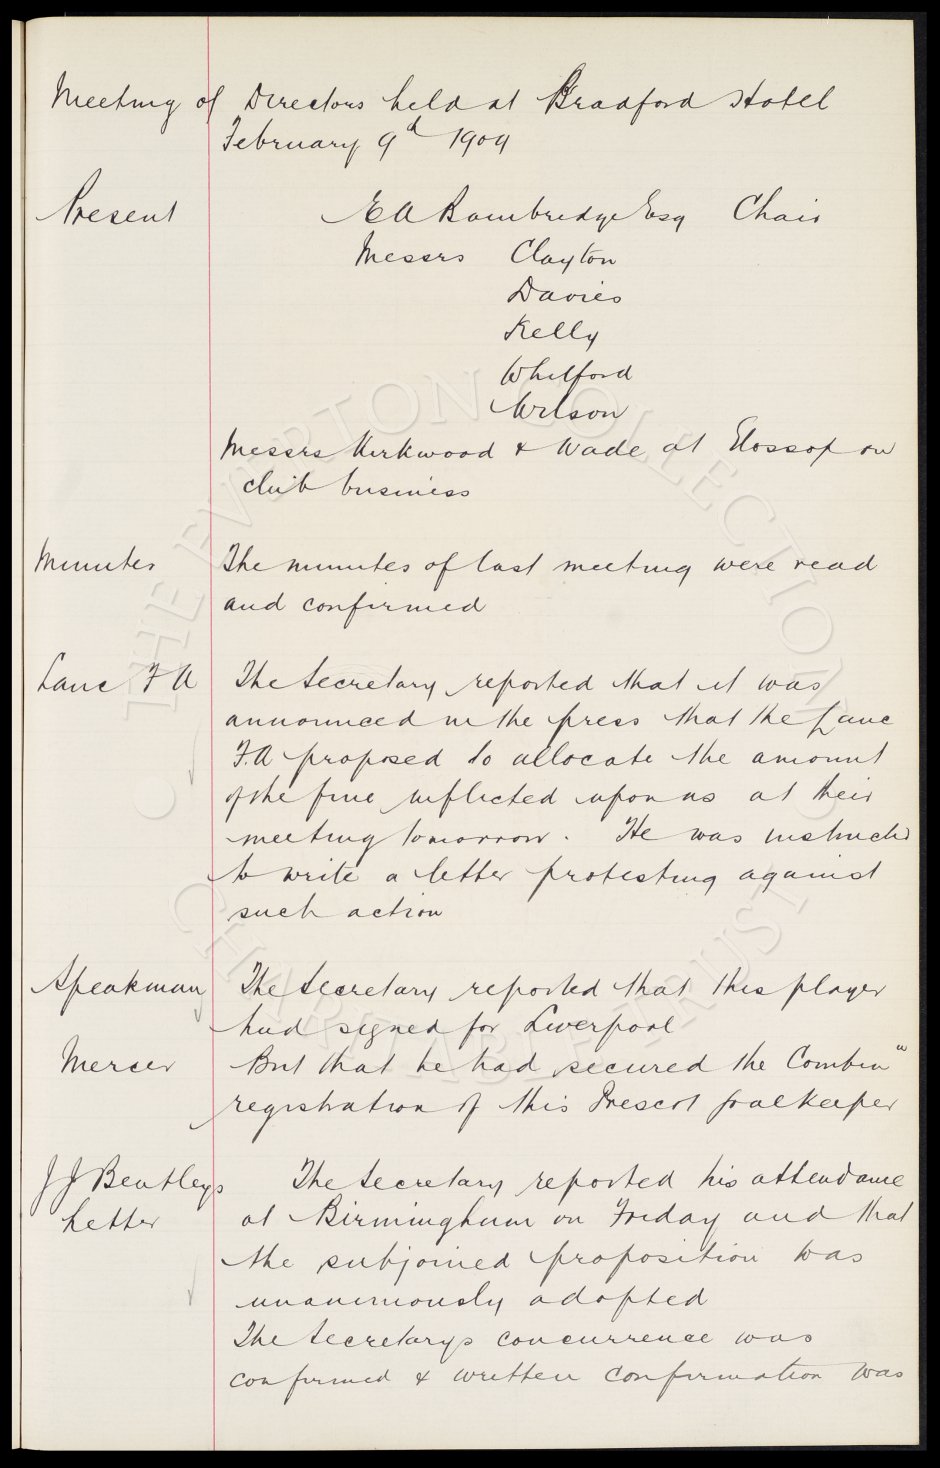 Meeting of Directors held at Bradford Hotel
February 9th 1909
Present E A Bainbridge Esq Chair
Messrs Clayton
Davies
Kelly
Whitford
Wilson
Messrs Kirkwood & Wade at Glossop on
club business
Minutes The minutes of last meeting were read
and confirmed
Lanc F A The Secretary reported that it was
announced in the press that the Lanc
F.A proposed to allocate the amount
of the fine inflicted upon us at their
meeting tomorrow. He was instructed
to write a letter protesting against
such action
Speakman The Secretary reported that this player
had signed for Liverpool
Mercer But that he had secured the Combin"
registration of this Prescot goalkeeper
J J Bentleys The Secretary reported his attendance
Letter at Birmingham on Friday and that
the subjoined proposition was
unanimously adopted
The Secretarys concurrence was
confirmed & written confirmation was
THE EVERTON COLLECTION
CHARITABLE TRUST